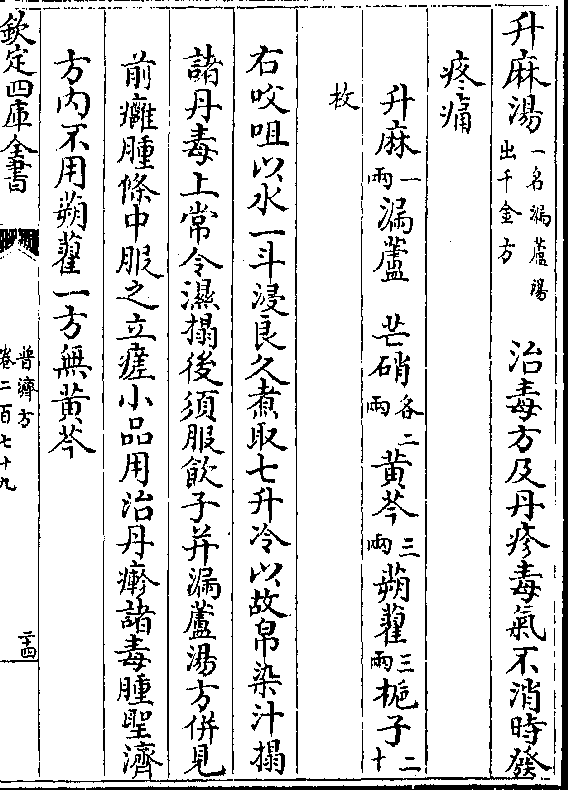 升麻湯一名漏蘆湯出千金方　治毒方及丹疹毒氣不消時發
疼痛
升麻一兩漏蘆　芒硝各二兩黄芩三兩蒴藋三兩梔子二十
枚
右㕮咀以水一斗浸良久煮取七升冷以故帛染汁搨
諸丹毒上常令濕搨後須服飲子并漏蘆湯方併見
前癰腫條中服之立瘥小品用治丹癤諸毒腫聖濟
方内不用蒴藋一方無黄芩
欽定四庫全書
普濟方
卷二百七十九
三十四